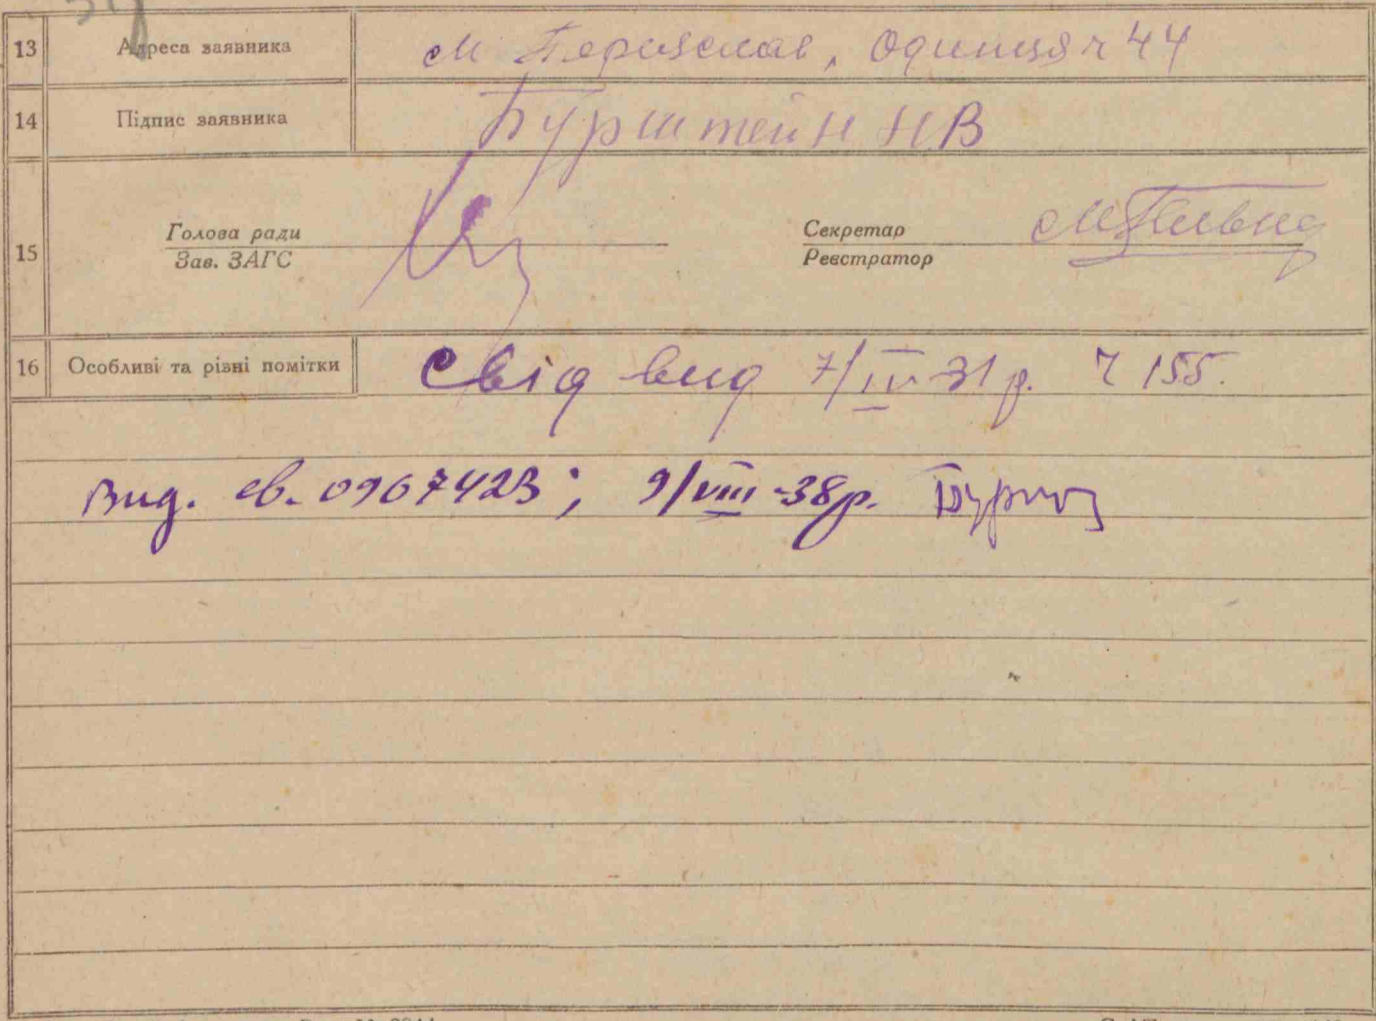 13 Адреса заявника м Переяслав, Одинця ч 44
14 Підпис заявника Бурштейн Н В
15 Голова ради
Зав. ЗАГС
Секретар
Реєстратор
16 Особливі та різні помітки Свід вид 7/IV-31 р. ч 155.
Вид. св. 0967423; 9/VIII-38р.